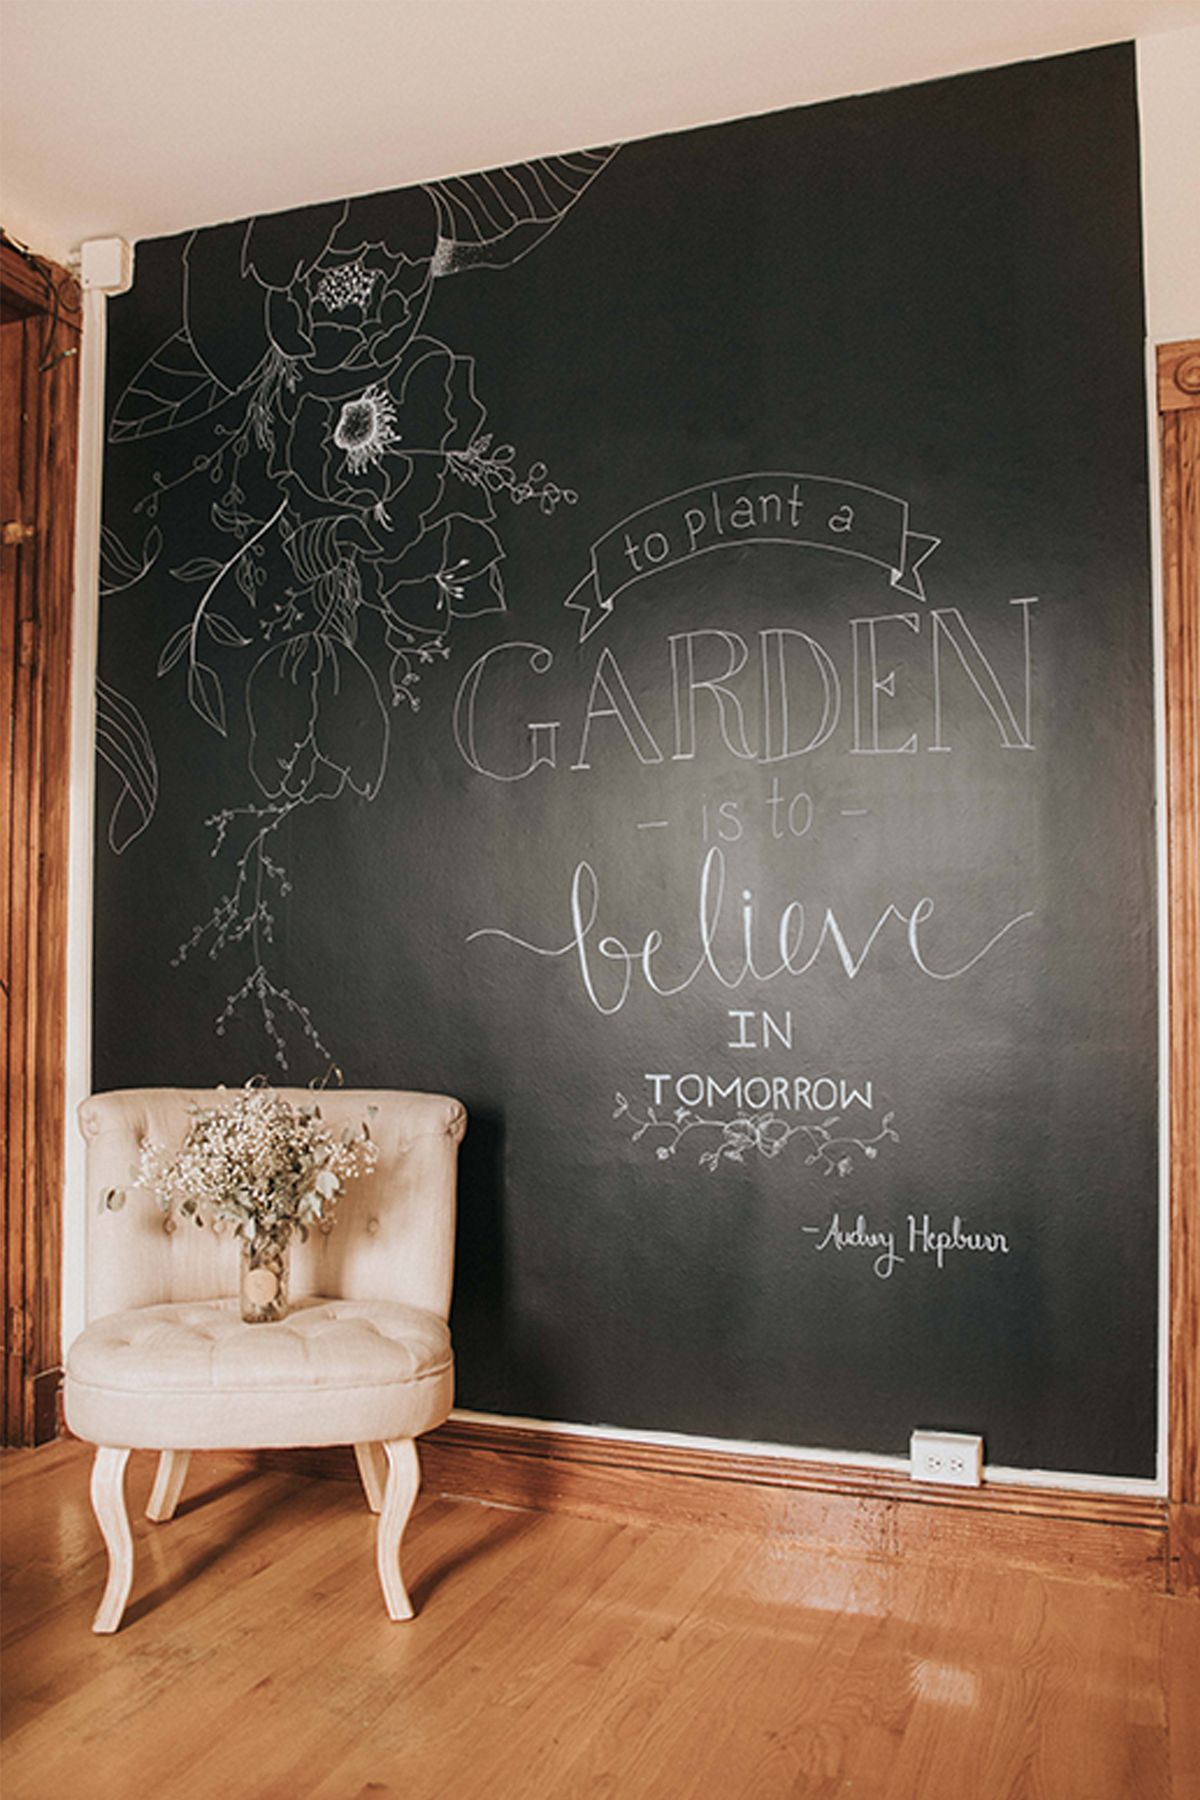 to plant a
GARDEN
- is to -
believe
IN
TOMORROW
-Audrey Hepburn